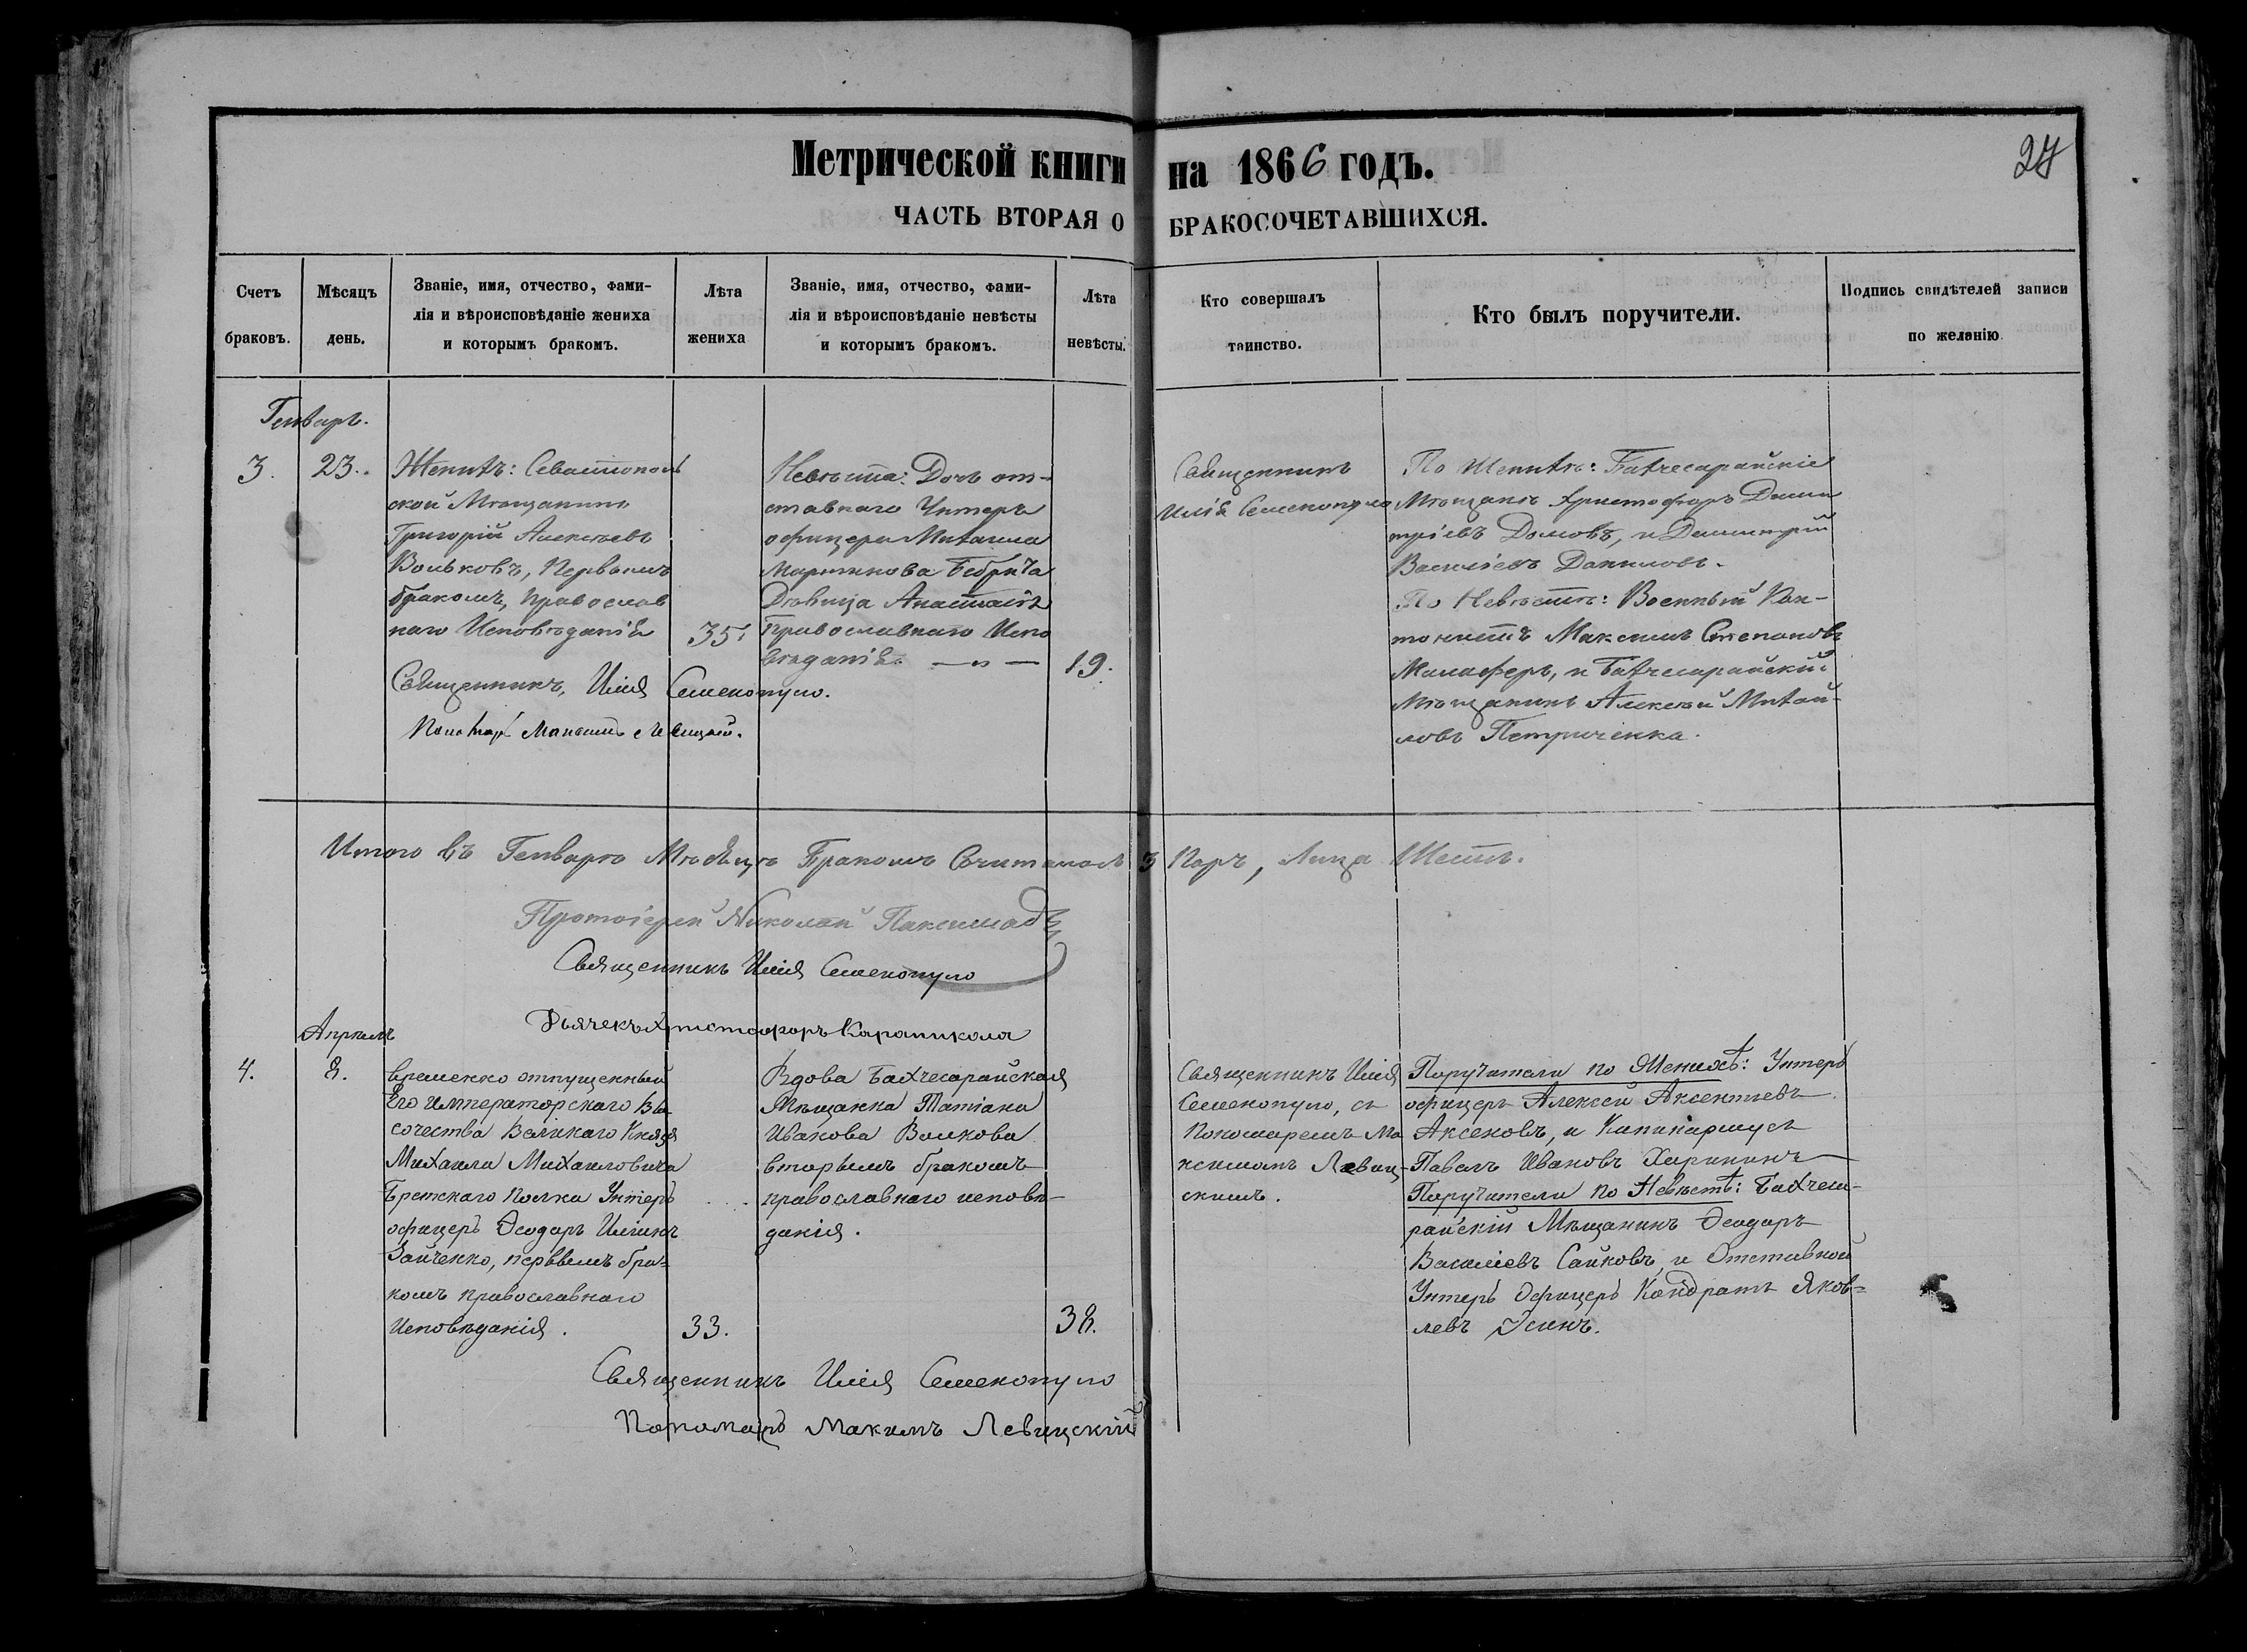 Метрической книги на 1866 годъ.
27
ЧАСТЬ ВТОРАЯ О БРАКОСОЧЕТАВШИХСЯ.
Счетъ
браковъ.
Мѣсяцъ
день.
Званіе, имя, отчество, фами-
лія и вѣроисповѣданіе жениха
и которымъ бракомъ.
Лѣта
жениха
Званіе, имя, отчество, фами-
лія и вѣроисповѣданіе невѣсты
и которымъ бракомъ.
Лѣта
невѣсты.
Кто совершалъ
таинство.
Кто былъ поручители.
Подпись свидѣтелей записи
по желанію
Генварь.
3.
23.
Женихъ: Севастополь
ской Мѣщанинъ
Григорій Алексѣевъ
Вольковъ, Первымъ
бракомъ, православ
наго Исповѣданія
35
Невѣста: Дочь от-
ставнаго Унтеръ
офицера Михаила
Мартинова
Дѣвица Анастасія
Православнаго Испо
вѣданія. — „ —
19.
Священникъ
Илія Семенопуло
По Женихѣ: Бахчесарайскіе
Мѣщане Христофоръ Дими
тріевъ Домовъ, и Димитрій
Василіевъ Даниловъ.
По Невѣстѣ: Военный Кан-
тонистъ Максимъ Степановъ
и Бахчесарайскій
Мѣщанинъ Алексѣй Михай-
ловъ Петриченка.
Священникъ, Илія Семенопуло.
Понамарь
Итого въ Генварѣ Мѣсяцѣ Бракомъ Считалось 3 Паръ, Лица Шесть.
Протоіерей Николай Паксимади
Священникъ Илія Семенопуло
Дьячекъ Христофоръ Караникола
Апрель
4.
8.
временно отпущенный
Его Императорскаго Вы-
сочества Великаго Князя
Михаила Михаиловича
полка Унтеръ
офицеръ Ѳеодоръ Иліинъ
Зайченко, первымъ бра-
комъ православнаго
Исповѣданія.
33.
Вдова Бахчесарайская
Мѣщанка Татіана
Иванова Волкова
вторымъ бракомъ
православнаго исповѣ-
данія.
38.
Священникъ Илія
Семенопуло, съ
Пономаремъ Ма
ксимомъ Левиц-
скимъ.
Поручители по Женихѣ: Унтеръ
офицеръ Алексей Аксентьевъ
Аксеновъ, и Капинармусъ
Павелъ Ивановъ Харининъ
Поручители по Невѣстѣ: Бахчеса-
райскій Мѣщанинъ Ѳеодоръ
Василіевъ Сайковъ, и Отставной
Унтеръ Офицеръ Кондратъ Яков=
левъ
Священникъ Илія Семенопуло
Пономарь Макимъ Левицскій